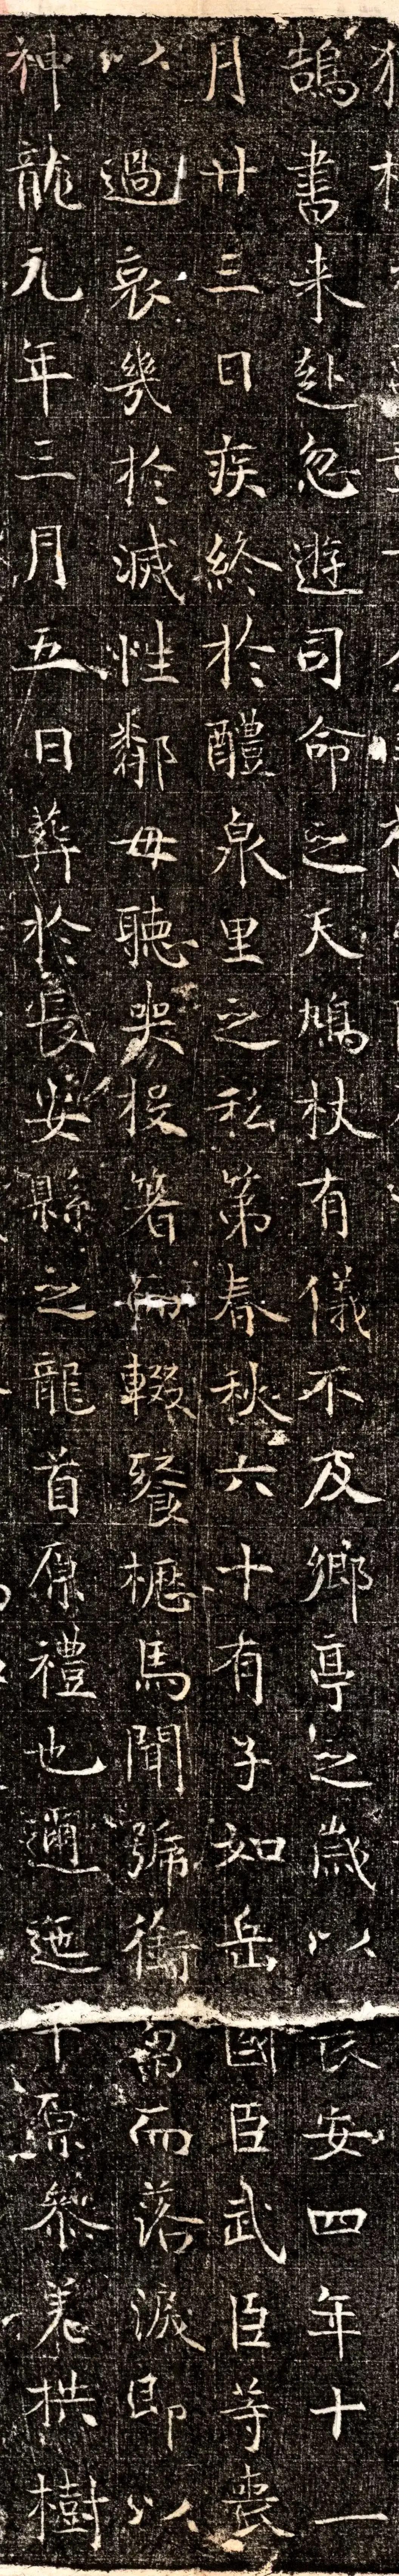 鵠書来赴忽遊司命之天鳩杖有儀不及鄉亭之歲以長安四年十一
月廿三日疾終於醴泉里之私第春秋六十有子如岳國臣武臣等喪
以過哀幾於滅性鄰母聽哭投箸而輟飡櫪馬聞號銜芻而落淚即以
神龍元年三月五日葬於長安縣之龍首原禮也邐迤平原參差拱樹